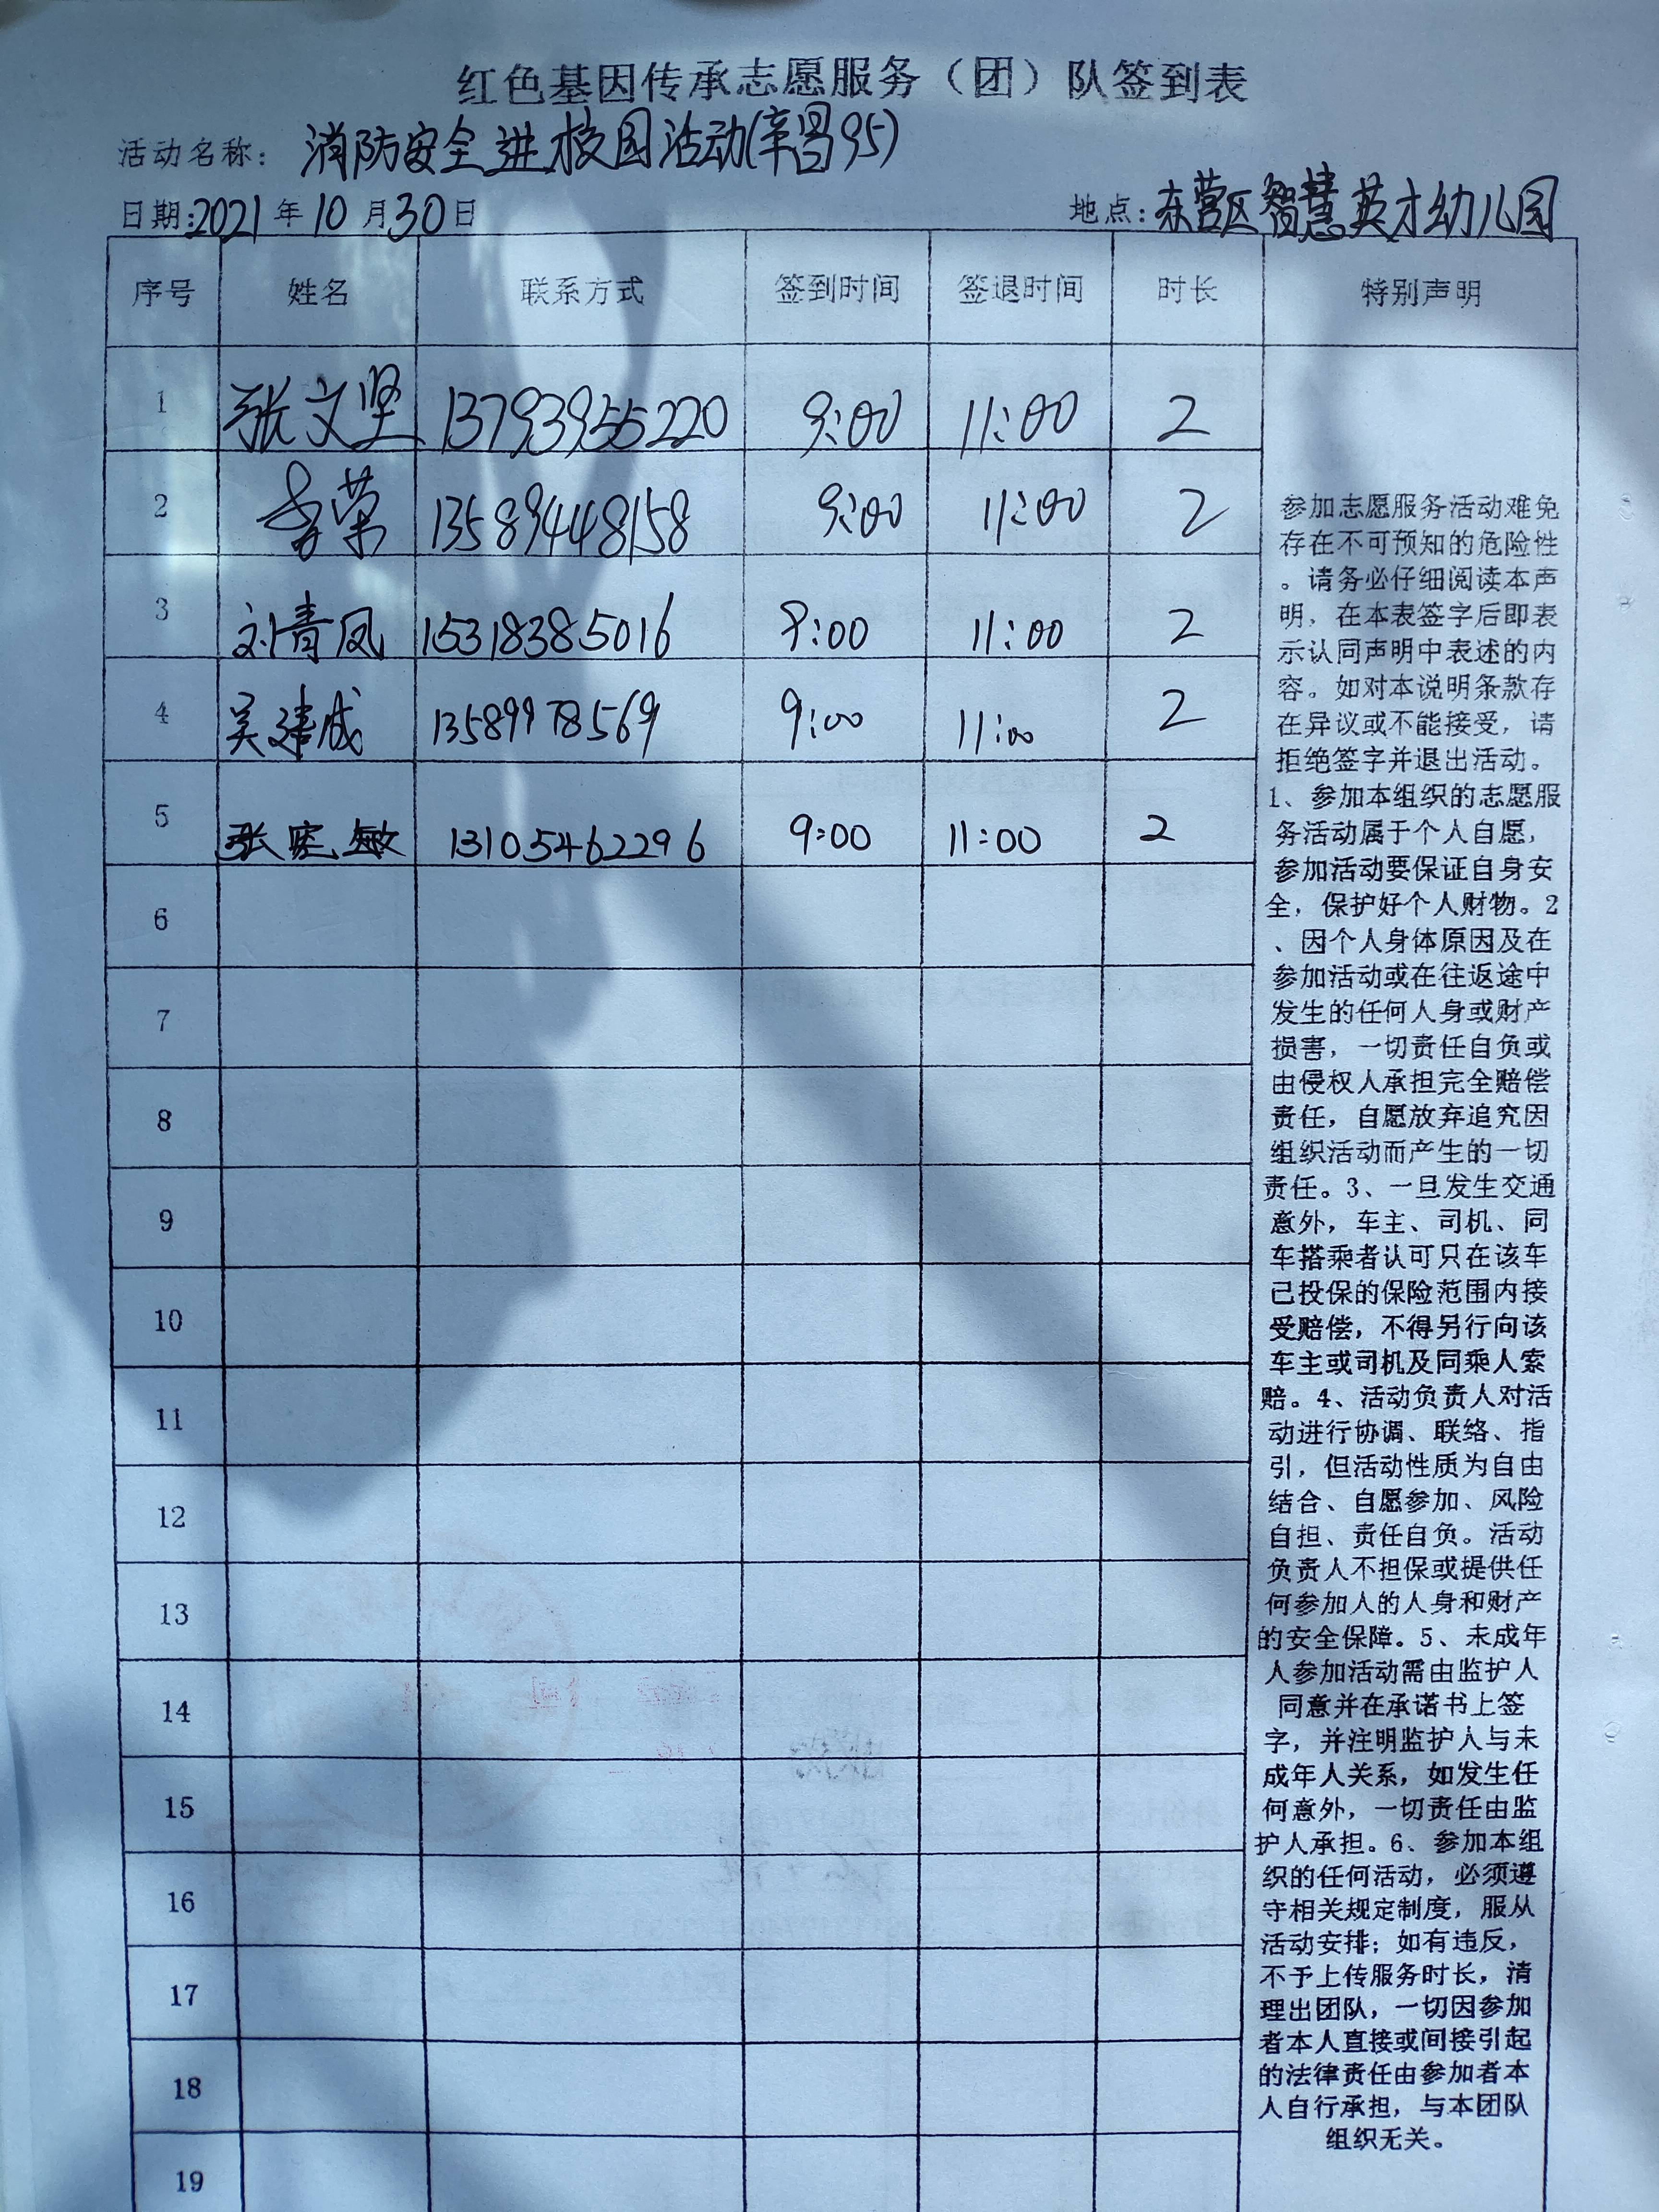 红色基因传承志愿服务（团）队签到表
活动名称：消防安全进校园活动(辛冒95)
日期:2021年10月30日 地点:东营区智慧英才幼儿园
序号 姓名 联系方式 签到时间 签退时间 时长 特别声明
1 张文坚 13793955220 9:00 11:00 2
2 李荣 13589448158 9:00 11:00 2
3 刘青凤 15318385016 9:00 11:00 2
4 吴建成 13589978569 9:00 11:00 2
5 张宪敏 13105462296 9:00 11:00 2
6
7
8
9
10
11
12
13
14
15
16
17
18
19
参加志愿服务活动难免
存在不可预知的危险性
。请务必仔细阅读本声
明，在本表签字后即表
示认同声明中表述的内
容。如对本说明条款存
在异议或不能接受，请
拒绝签字并退出活动。
1、参加本组织的志愿服
务活动属于个人自愿，
参加活动要保证自身安
全，保护好个人财物。2
、因个人身体原因及在
参加活动或在往返途中
发生的任何人身或财产
损害，一切责任自负或
由侵权人承担完全赔偿
责任，自愿放弃追究因
组织活动而产生的一切
责任。3、一旦发生交通
意外，车主、司机、同
车搭乘者认可只在该车
已投保的保险范围内接
受赔偿，不得另行向该
车主或司机及同乘人索
赔。4、活动负责人对活
动进行协调、联络、指
引，但活动性质为自由
结合、自愿参加、风险
自担、责任自负。活动
负责人不担保或提供任
何参加人的人身和财产
的安全保障。5、未成年
人参加活动需由监护人
同意并在承诺书上签
字，并注明监护人与未
成年人关系，如发生任
何意外，一切责任由监
护人承担。6、参加本组
织的任何活动，必须遵
守相关规定制度，服从
活动安排；如有违反，
不予上传服务时长，清
理出团队，一切因参加
者本人直接或间接引起
的法律责任由参加者本
人自行承担，与本团队
组织无关。